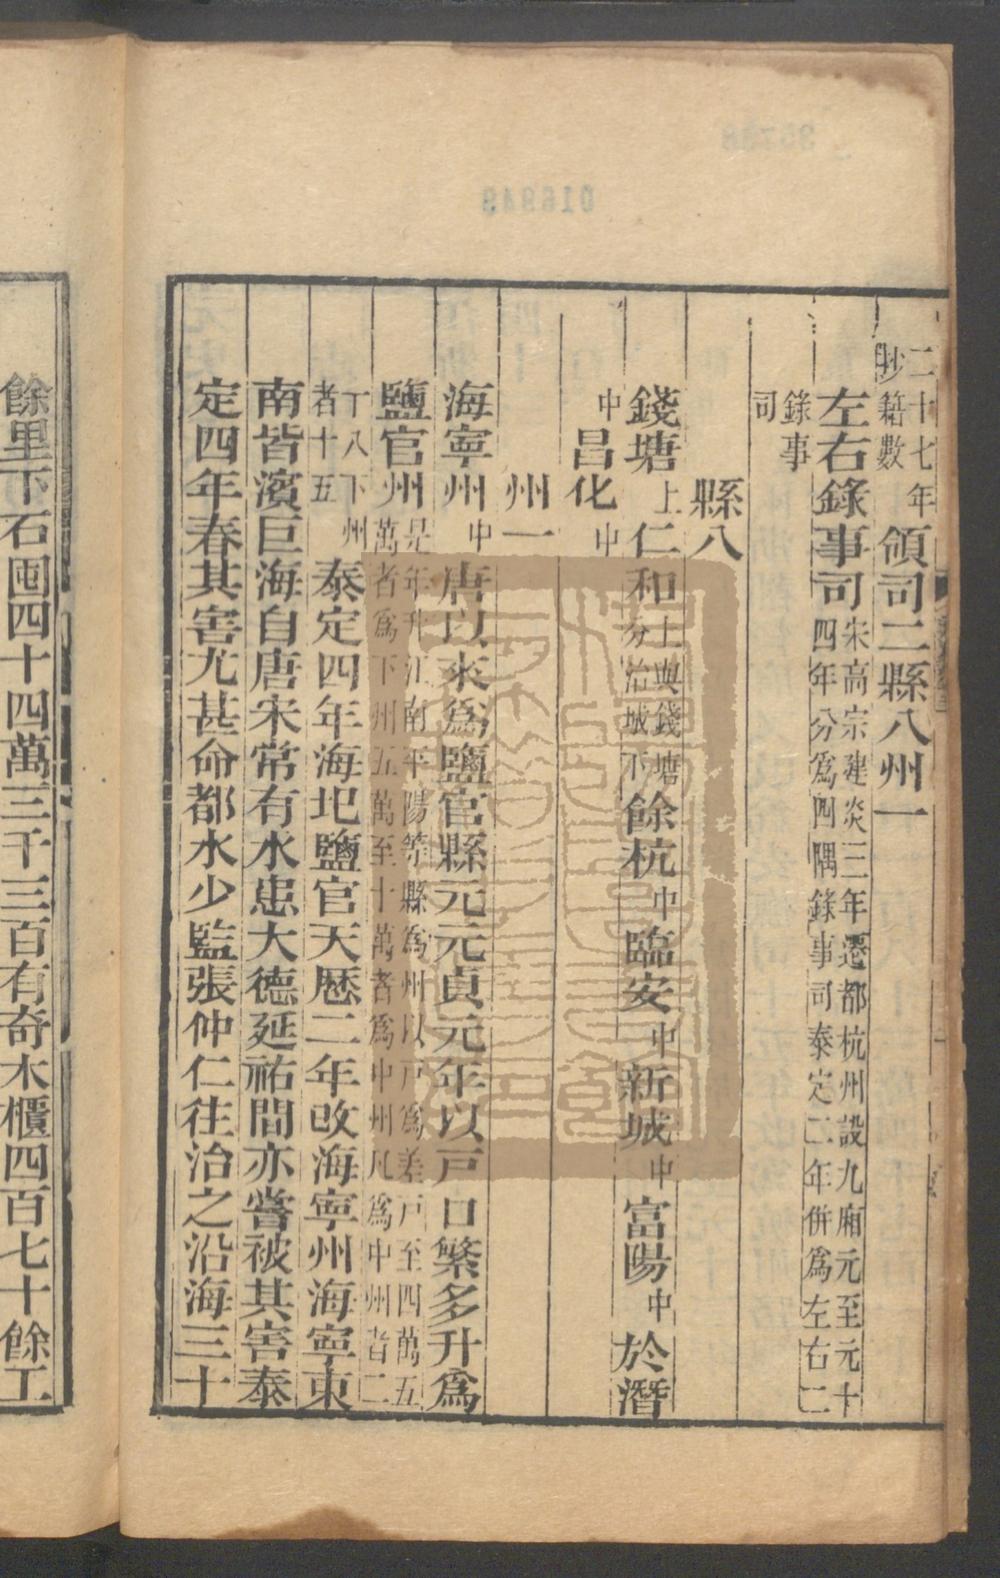 二十七年抄籍數領司二縣八州一
左右錄事司宋高宗建炎三年遷都杭州設九廂元至元十四年分爲四隅錄事司泰定二年併爲左右二
錄事司
縣八
錢塘上仁和上與錢塘分治城下餘杭中臨安中新城中富陽中於潛
中昌化中
州一
海寧州中唐以來爲鹽官縣元元貞元年以戶口繁多升爲
鹽官州是年升江南平陽等縣爲州以戶爲差戶至四萬五萬者爲下州五萬至十萬者爲中州凡爲中州者二
十八下州者十五泰定四年海圮鹽官天曆二年改海寧州海寧東
南皆濱巨海自唐宋常有水患大德延祐間亦嘗被其害泰
定四年春其害尤甚命都水少監張仲仁往治之沿海三十
餘里下石囤四十四萬三千三百有奇木櫃四百七十餘工